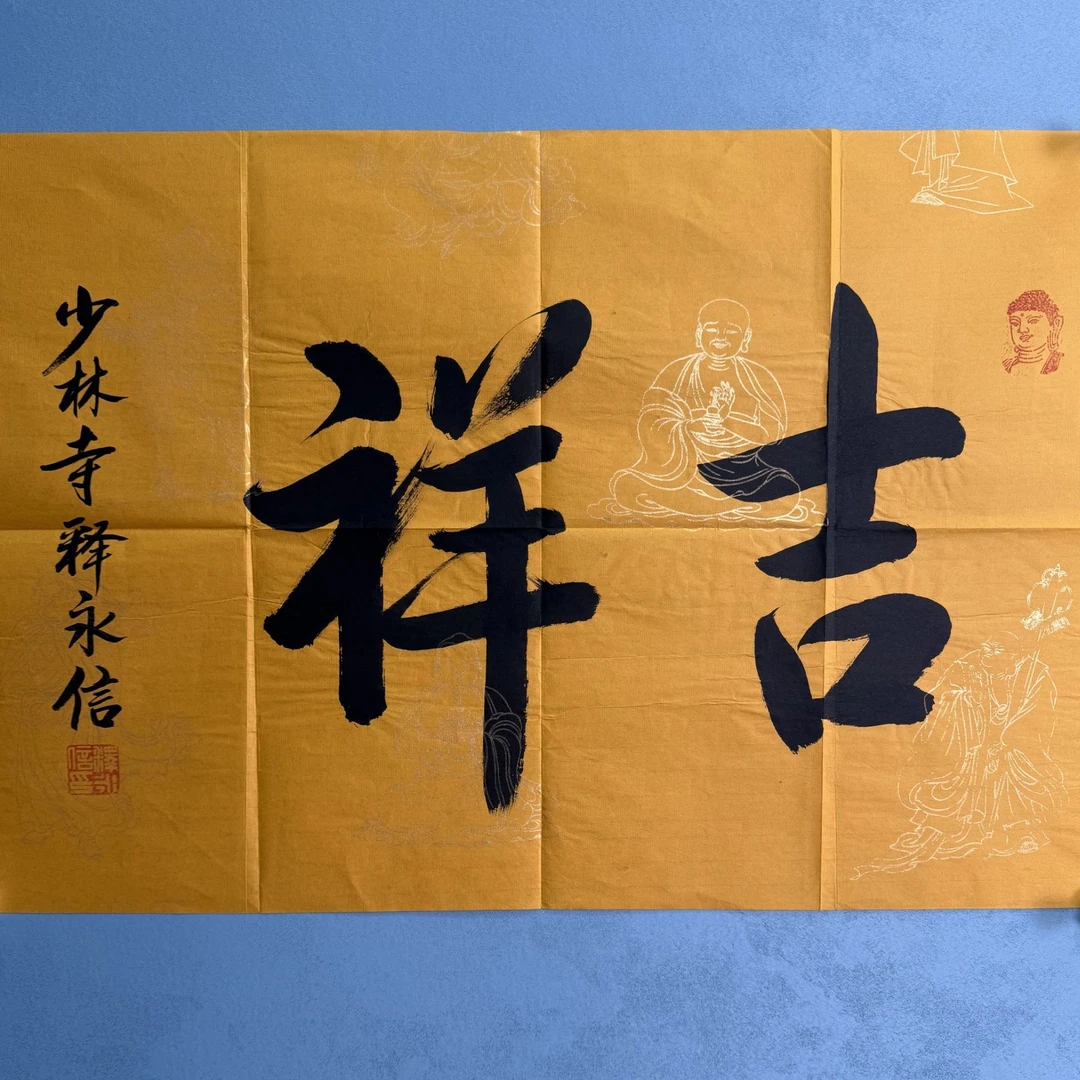 吉祥
少林寺释永信